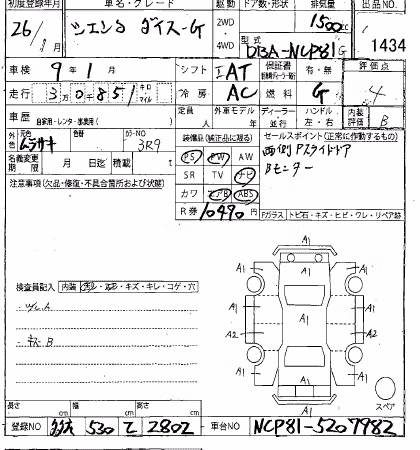 初度登録年月 車名・グレード 駆動 ドア数・形状 排気量 出品NO.
26/1月 シエンタ ダイス-G 2WD 4WD 1500cc 1434
型式 DBA-NCP81G
車検 9年1月 シフト IAT 保証書 有・無 評価点
走行 3万0千851 キロ マイル 冷房 AC 燃料 G 4
車歴 自家用・レンタ・事業用( ) 外車モデル 年 ディーラー 並行 ハンドル 左・右 内装評価 B
外色 元色 ムラサキ 色替 カラーNO 3R9
装備品(純正品に限る) セールスポイント(正常に作動するもの)
名義変更期限 月 日迄 積載 t
PS PW AW
両側Pスライドドア
SR TV ナビ
Bモニター
カワ エアB ABS
R券 10490円
注意事項(欠品・修復・不具合箇所および状態)
Fガラス トビ石・キズ・ヒビ・ワレ・リペア跡
A1 A1 A1
A1 A1
A1 A1
A2 A2
A1 A1
A1
スペア
検査員記入 内装 キズ・キレ・コゲ・穴
A
キズB
長さ cm 幅 cm 高さ cm
登録NO 530 て 2802 車台NO NCP81-5207982